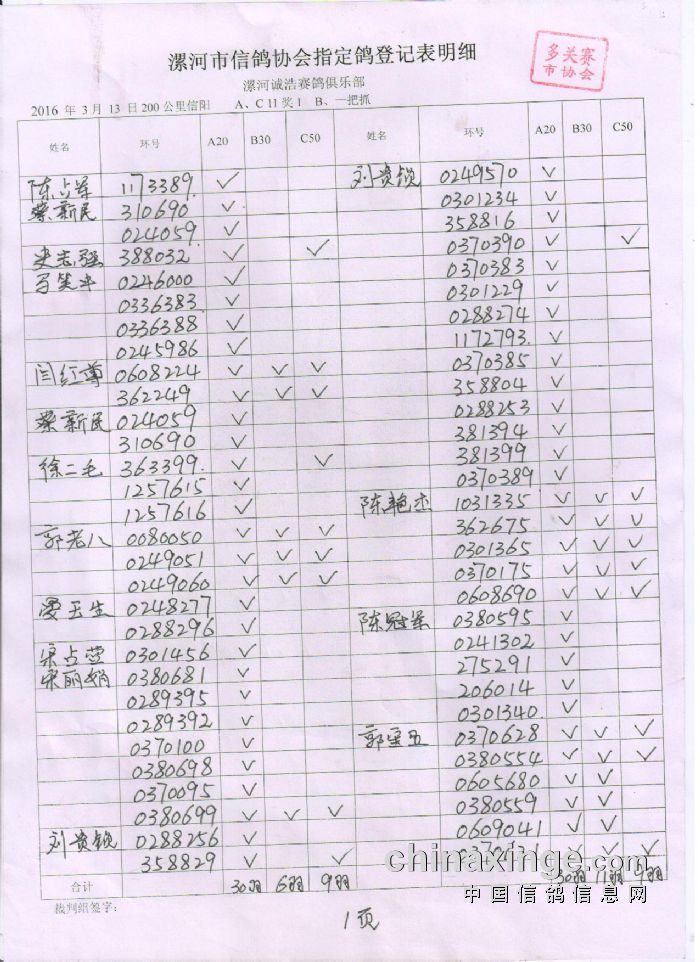 漯河市信鸽协会指定鸽登记表明细
多关赛
市协会
漯河诚浩赛鸽俱乐部
2016 年 3 月 13 日 200 公里信阳 A、C 11 奖 1 B、一把抓
姓名 环号 A20 B30 C50 姓名 环号 A20 B30 C50
陈占军 1173389 ✓ 刘贵锁 0249570 ✓
蔡新民 310690 ✓ 0301234 ✓
024059 ✓ 358816 ✓
史志强 388032 ✓ ✓ 0370390 ✓ ✓
马笑平 0246000 ✓ 0370383 ✓
0336383 ✓ 0301229 ✓
0336388 ✓ 0288274 ✓
0245986 ✓ 1172793 ✓
闫红尊 0608224 ✓ ✓ ✓ 0370385 ✓
362249 ✓ ✓ ✓ 358804 ✓
蔡新民 024059 ✓ 0288253 ✓
310690 ✓ 381394 ✓
徐二毛 363399 ✓ ✓ 381399 ✓
1257615 ✓ 0370389 ✓
1257616 ✓ 陈艳杰 1031335 ✓ ✓ ✓
郭老八 0080050 ✓ ✓ ✓ 362675 ✓ ✓ ✓
0249051 ✓ ✓ ✓ 0301365 ✓ ✓ ✓
0249060 ✓ ✓ ✓ 0370175 ✓ ✓ ✓
玉生 0248277 ✓ 0608690 ✓ ✓ ✓
0288296 ✓ 陈冠军 0380595 ✓
宋占营 0301456 ✓ 0241302 ✓
宋丽娟 0380681 ✓ 275291 ✓
0289395 ✓ 206014 ✓
0289392 ✓ 0301340 ✓
0370100 ✓ 郭宝五 0370628 ✓ ✓ ✓
0380698 ✓ 0380554 ✓ ✓ ✓
0370095 ✓ 0605680 ✓ ✓
0380699 ✓ ✓ ✓ 0380559 ✓ ✓
刘贵锁 0288256 ✓ 0609041 ✓ ✓
358829 ✓ ✓ ✓ ✓ ✓
合计 30羽 6羽 9羽 30羽 11羽 9羽
chinaxinge.com
中国信鸽信息网
裁判组签字：
1页